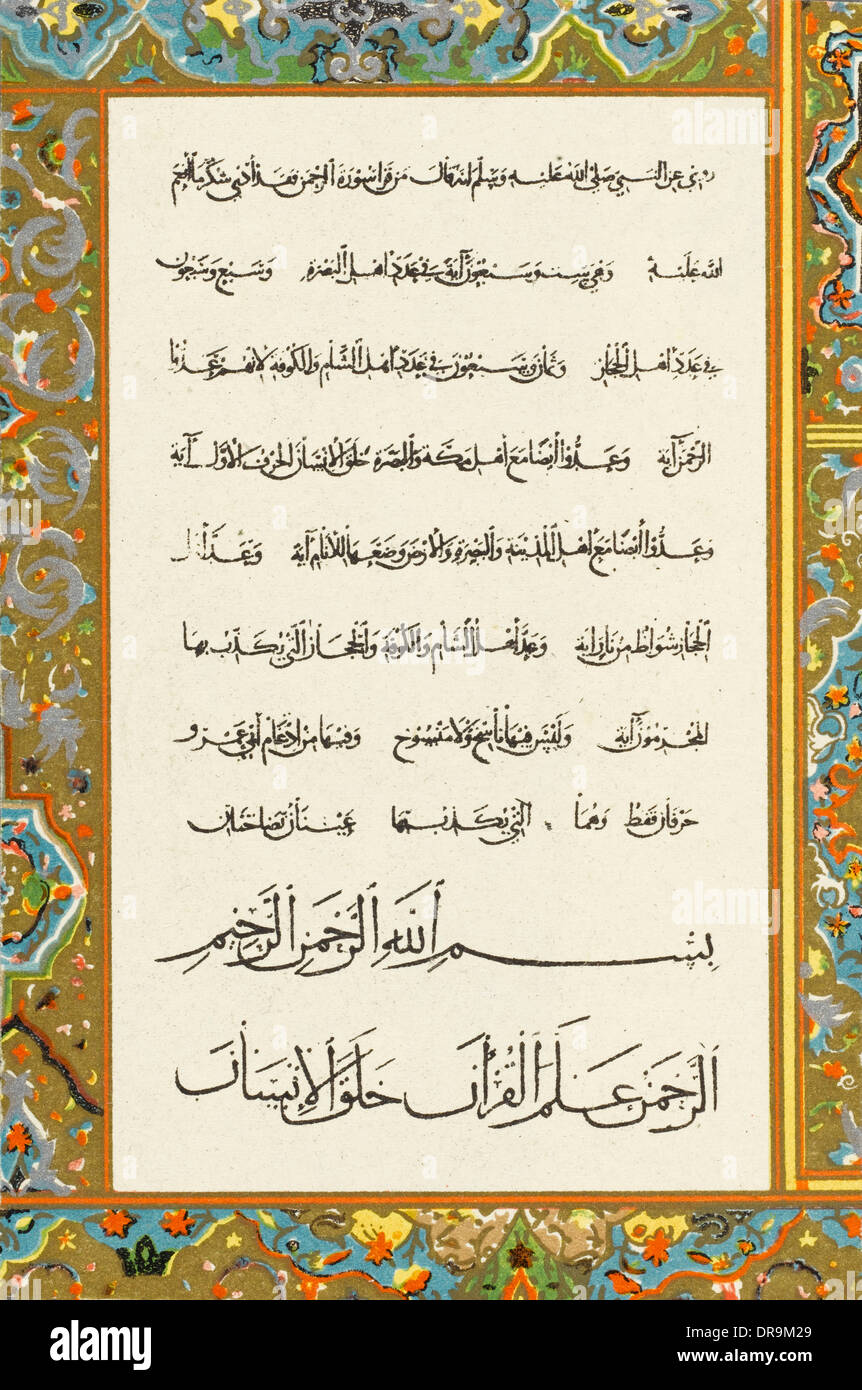 روي عن النبي صلى الله عليه وسلم انه قال من قرا سورة الرحمن فقد أدى شكر ما أنعم
الله عليه وهي ست وسبعون آية في عدد اهل البصرة وسبع وسبعون
في عدد اهل الحجاز وثمان وسبعون في عدد اهل الشام والكوفة لانهم عدوا
الرحمن آية وعدوا أيضا مع أهل مكة والبصرة خلق الإنسان الحرف الأول آية
وعدوا أيضا مع اهل المدينة والبصرة والارض وضعها للانام آية وعد أهل
الحجاز شواظ من نار آية وعد أهل الشام والكوفة والحجاز التي يكذب بها
المجرمون آية وليس فيها ناسخ ولا منسوخ وفيها من إدغام أبي عمرو
حرفان فقط وهما التي يكذب بها عينان نضاختان
بسم الله الرحمن الرحيم
الرحمن علم القرآن خلق الإنسان
alamy
Image ID: DR9M29
www.alamy.com